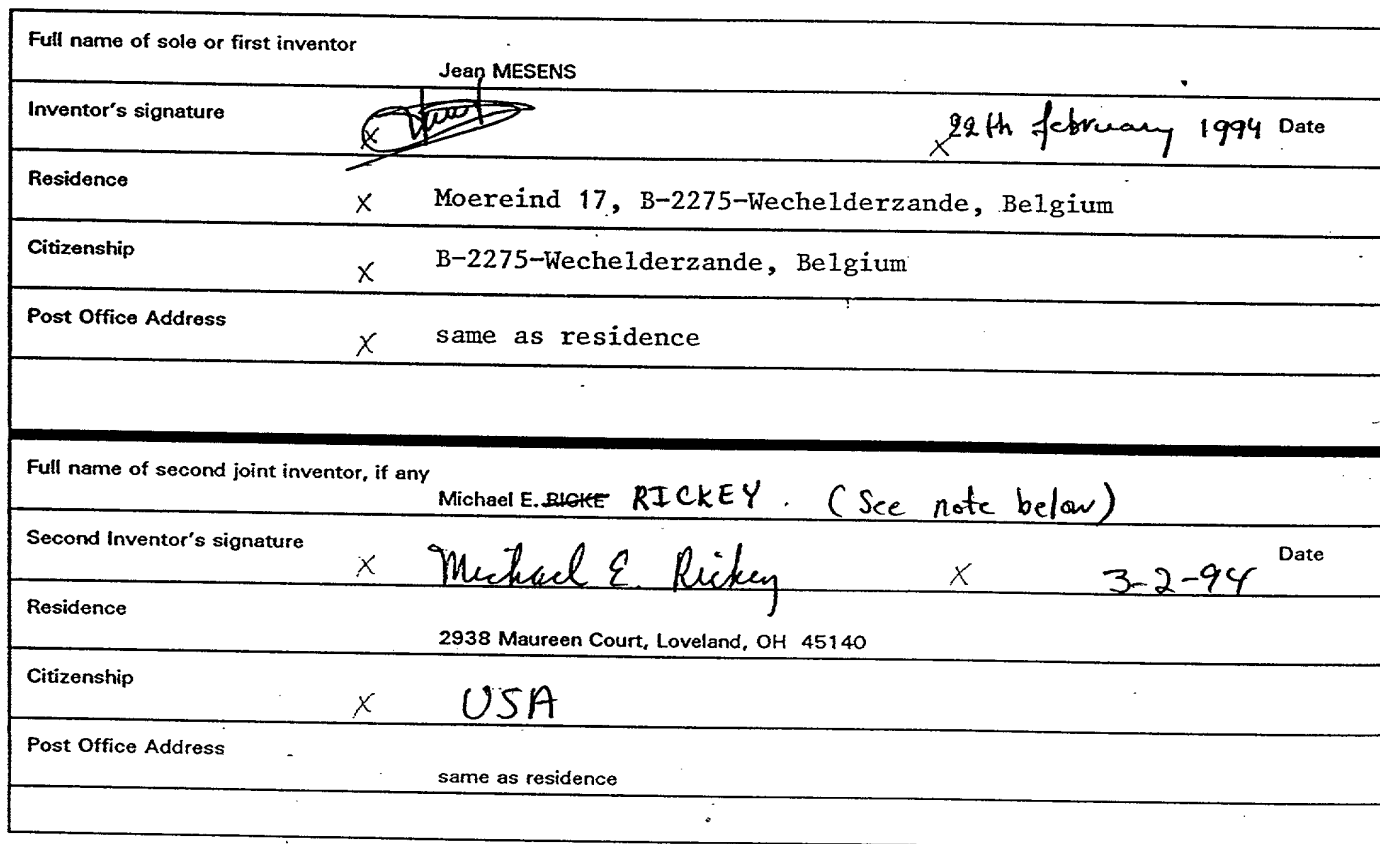 Full name of sole or first inventor
Jean MESENS
Inventor's signature
X 22th february 1994 Date
Residence
X Moereind 17, B-2275-Wechelderzande, Belgium
Citizenship
X B-2275-Wechelderzande, Belgium
Post Office Address
X same as residence
Full name of second joint inventor, if any
Michael E. RICKE RICKEY. (See note below)
Second Inventor's signature
X Michael E. Rickey X 3-2-94 Date
Residence
2938 Maureen Court, Loveland, OH 45140
Citizenship
X USA
Post Office Address
same as residence